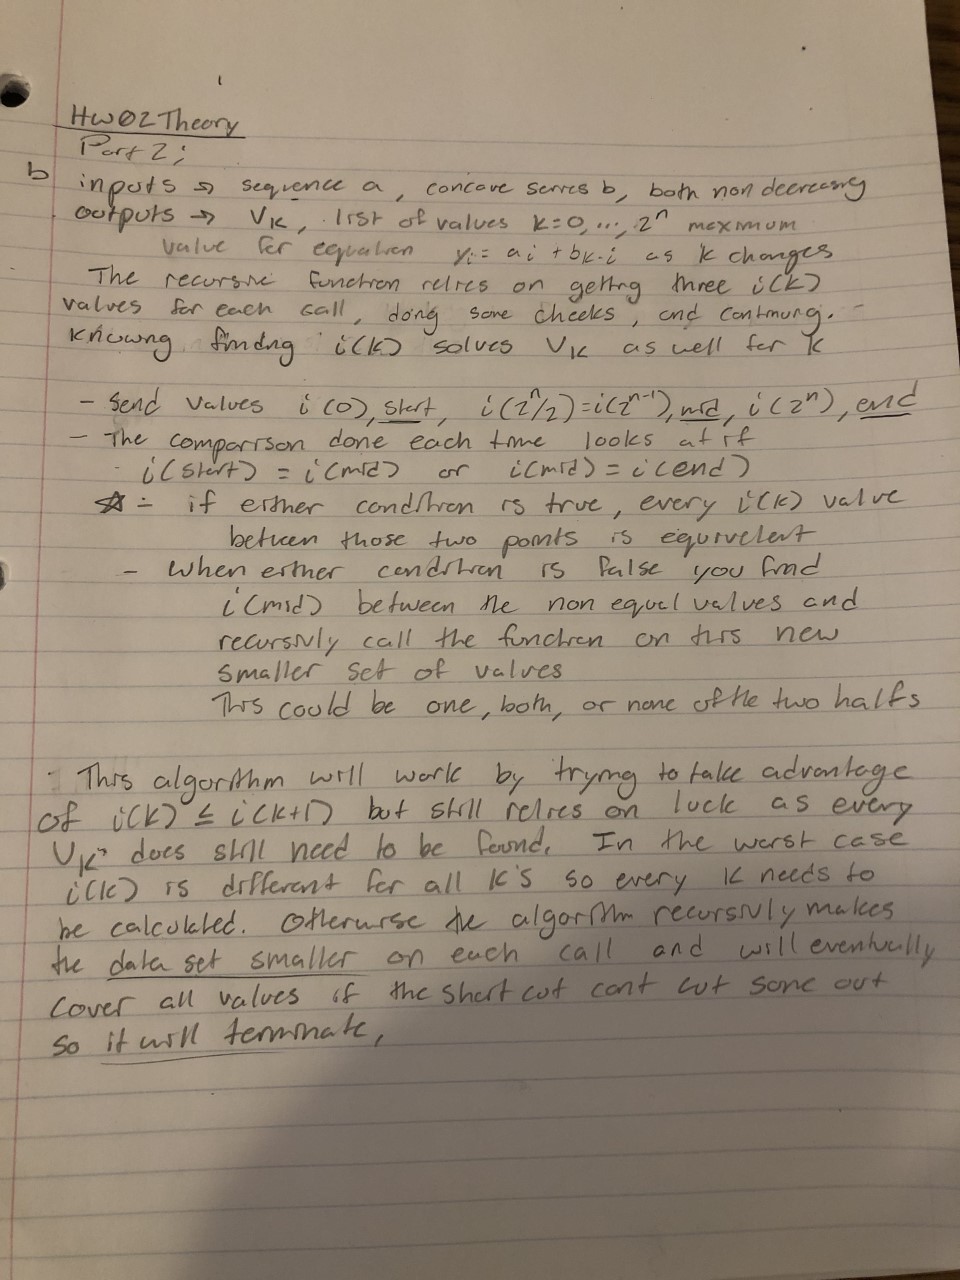 HW02 Theory
Part 2;
b inputs → sequence a, concave series b, both non decreasing
outputs → VK, list of values k=0,...,2^n maximum
value for equation yi = ai + bk-i as k changes
The recursive function relies on getting three i(k)
values for each call, doing some checks, and continuing.
Knowing finding i(k) solves VK as well for K
- Send values i(0), start, i(2^n/2)=i(2^n-1), mid, i(2^n), end
- The comparison done each time looks at if
i(start) = i(mid) or i(mid) = i(end)
☆ - if either condition is true, every i(k) value
between those two points is equivelent
- When either condition is false you find
i(mid) between the non equal values and
recursivly call the function on this new
smaller set of values
This could be one, both, or none of the two halfs
- This algorithm will work by trying to take advantage
of i(k) ≤ i(k+1) but still relies on luck as every
VK does still need to be found. In the worst case
i(k) is different for all K's so every K needs to
be calculated. Otherwise the algorithm recursivly makes
the data set smaller on each call and will eventually
cover all values if the short cut cant cut some out
so it will terminate,